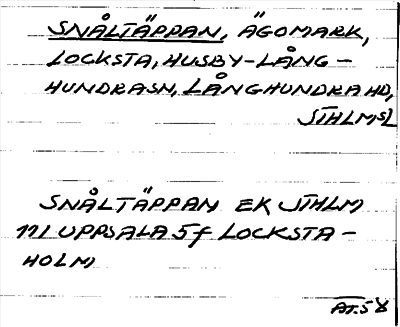 SNÅLTÄPPAN, ÄGOMARK,
LOCKSTA, HUSBY-LÅNG-
HUNDRASN, LÅNGHUNDRA HD,
STHLMSL
SNÅLTÄPPAN EK STHLM
111 UPPSALA 5f LOCKSTA-
HOLM
AT.58